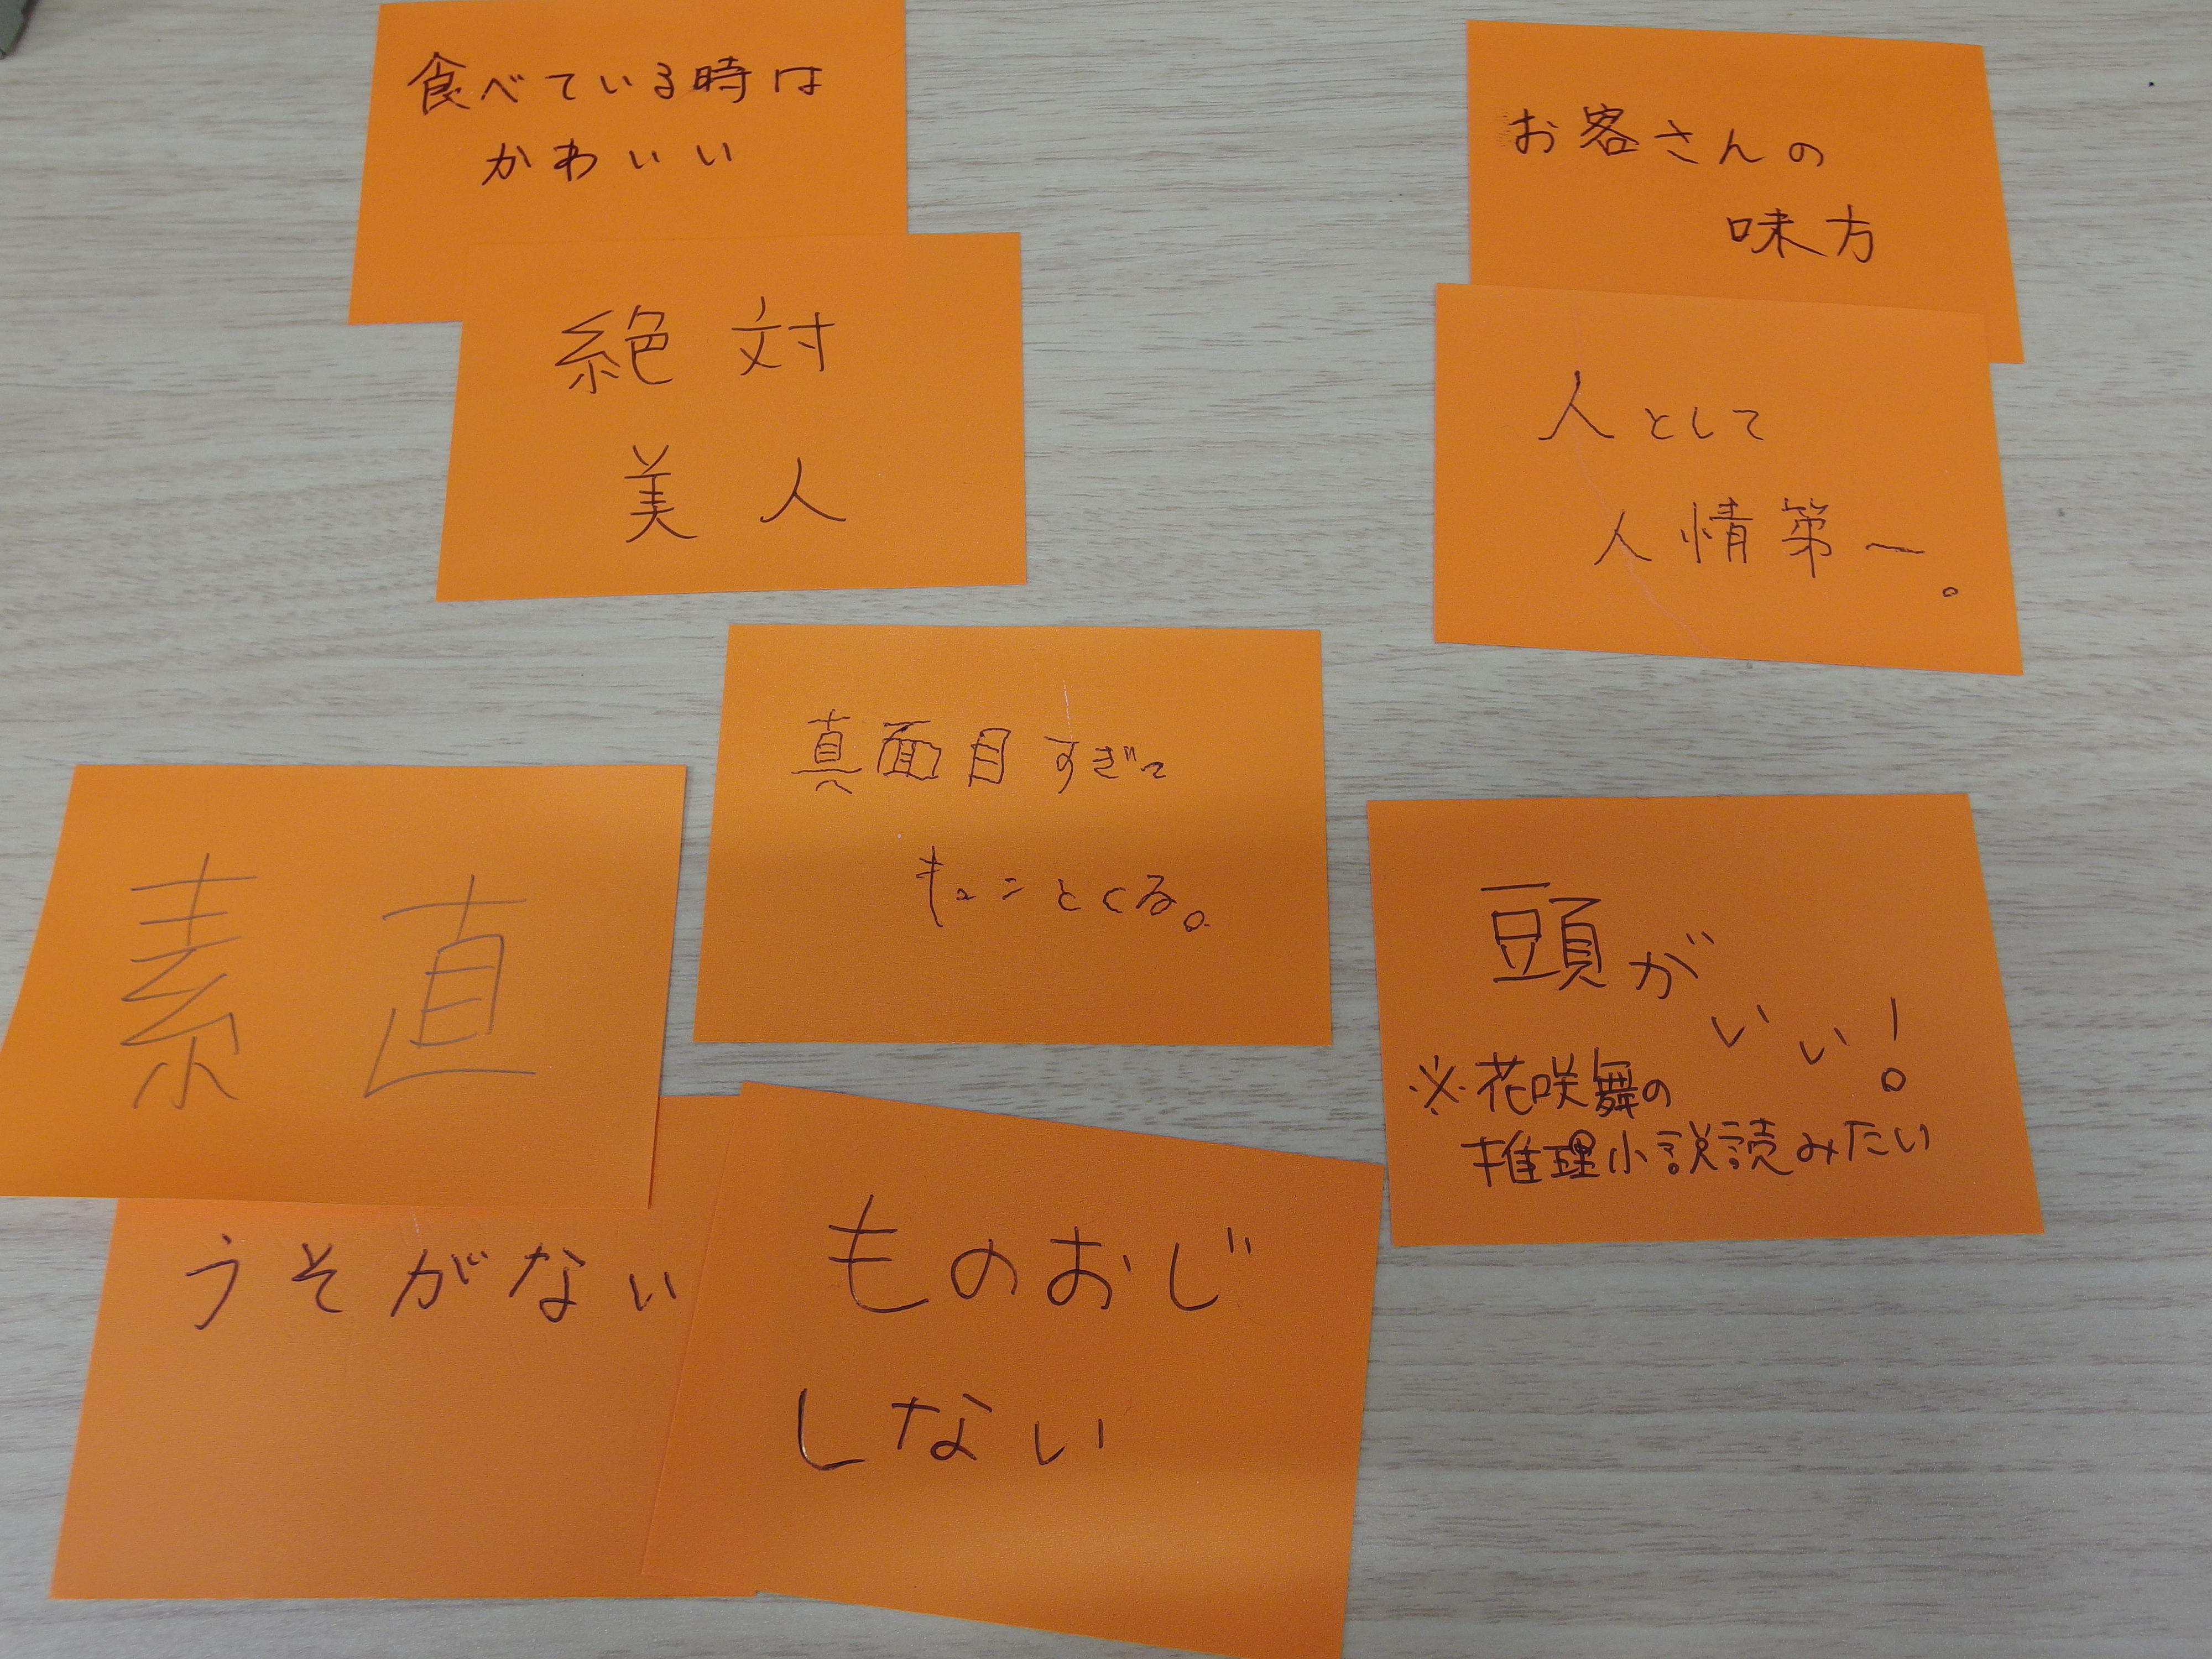 食べている時は
かわいい
絶対
美人
お客さんの
味方
人として
人情第一。
真面目すぎて
キュンとくる。
素直
うそがない
ものおじ
しない
頭が
いい!
※花咲舞の
推理小説読みたい